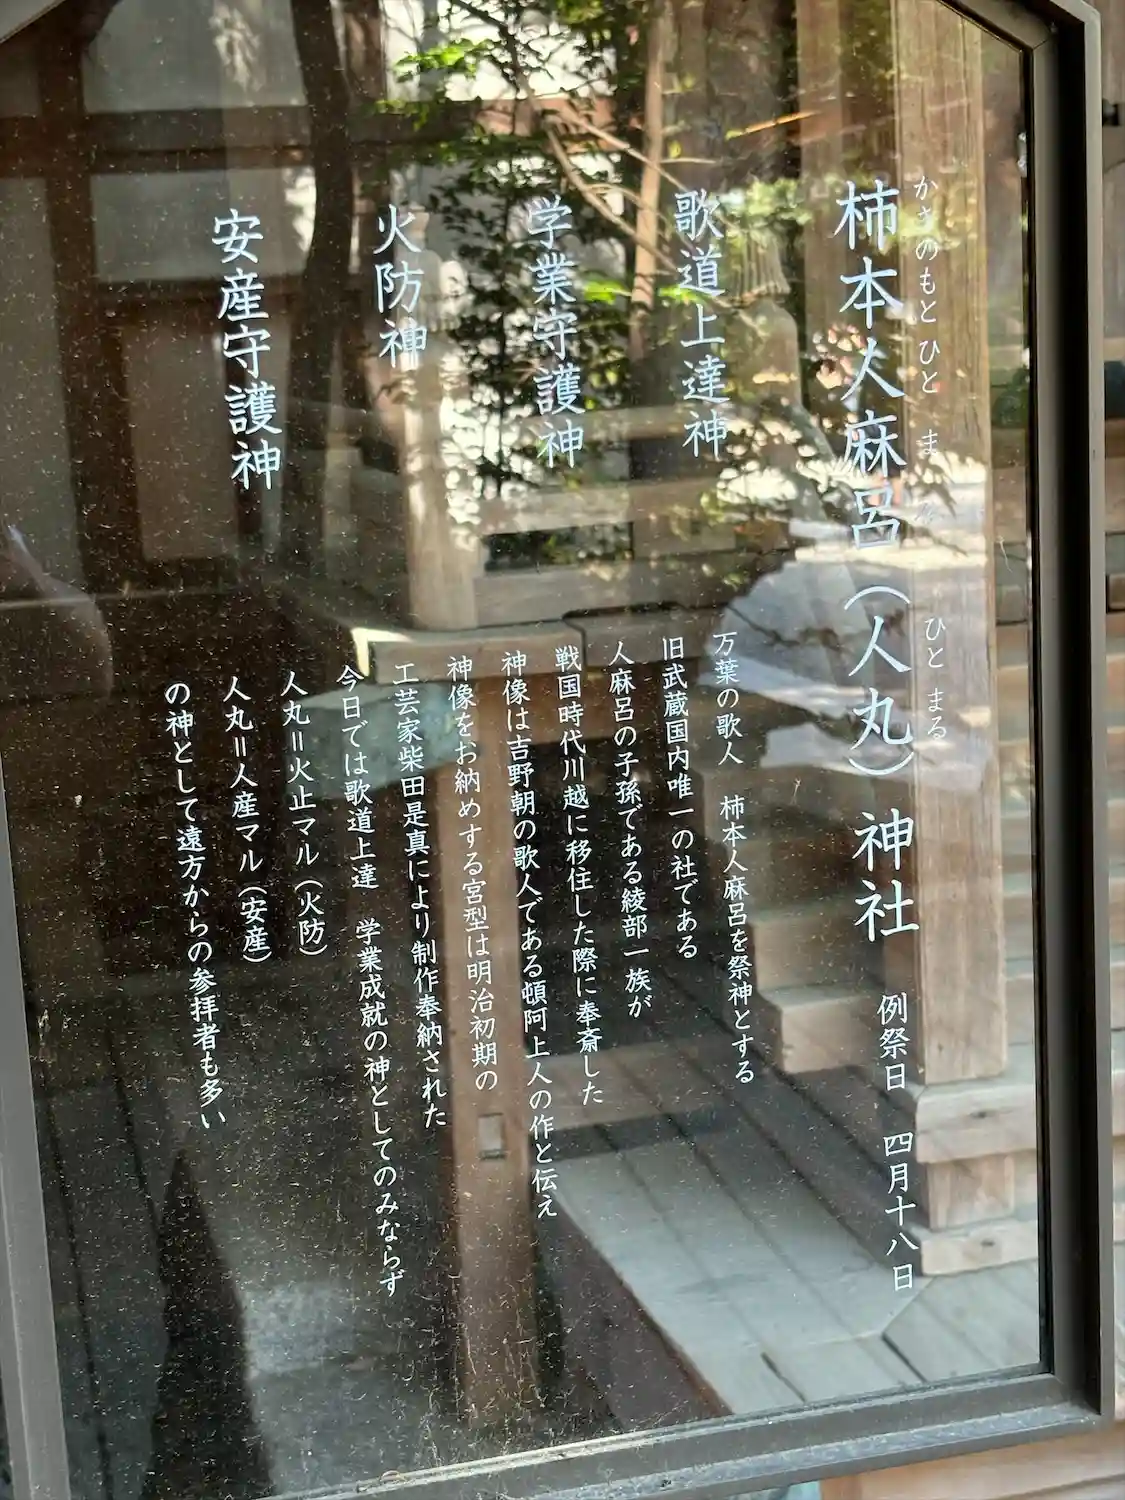 かきのもと ひと ま ひと まる
柿本人麻呂(人丸)神社 例祭日 四月十八日
歌道上達神
学業守護神
火防神
安産守護神
万葉の歌人 柿本人麻呂を祭神とする
旧武蔵国内唯一の社である
人麻呂の子孫である綾部一族が
戦国時代川越に移住した際に奉斎した
神像は吉野朝の歌人である頓阿上人の作と伝え
神像をお納めする宮型は明治初期の
工芸家柴田是真により制作奉納された
今日では歌道上達 学業成就の神としてのみならず
人丸=火止マル(火防)
人丸=人産マル(安産)
の神として遠方からの参拝者も多い